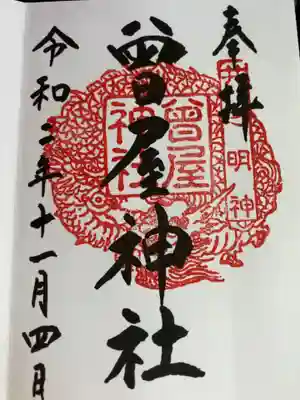 奉拝
曾屋神社
令和二年十一月四日
曾屋
神社
明神